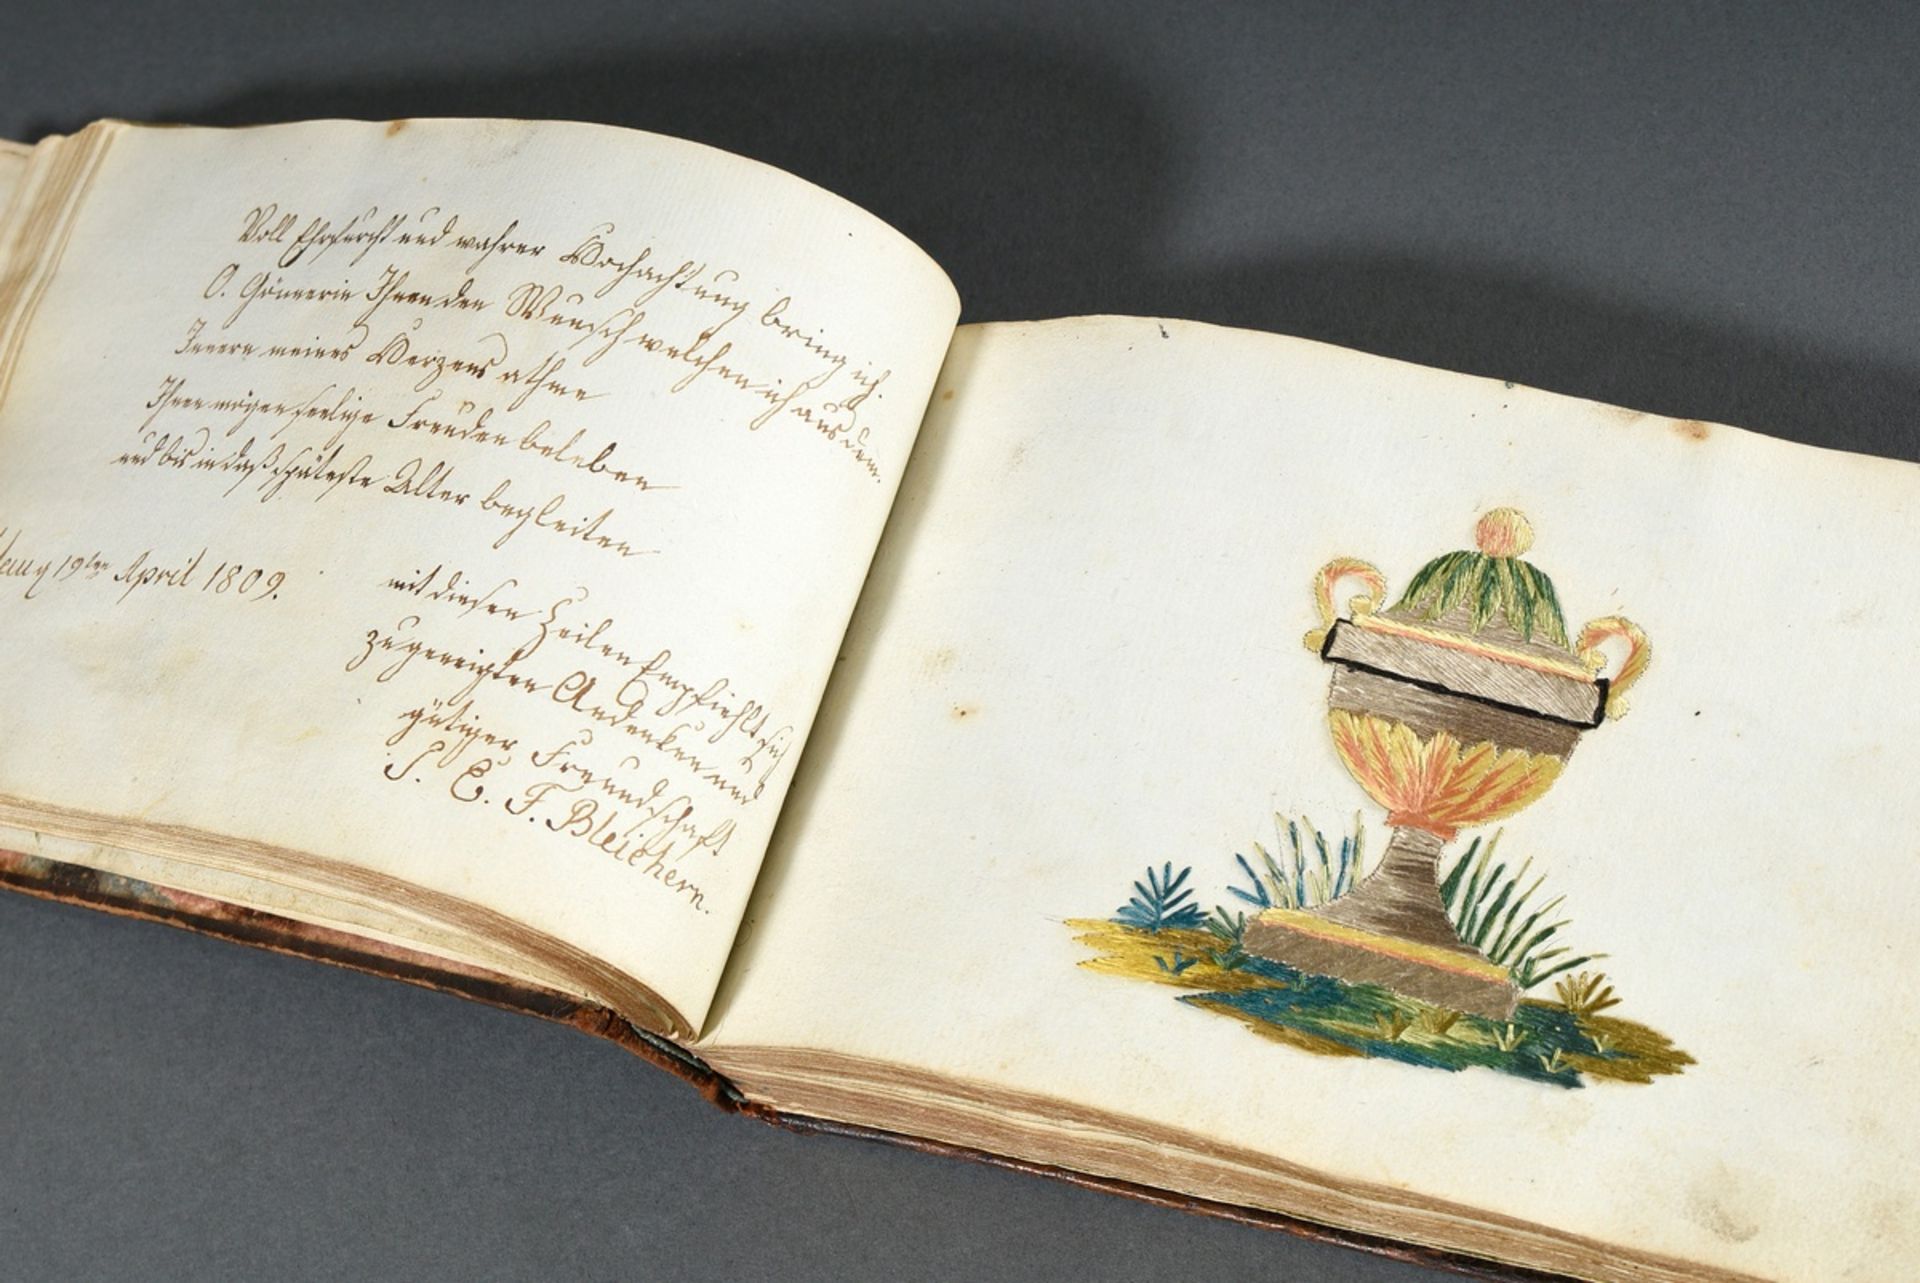 Voll Ehrfurcht und wahrer Hochachtung bring ich
O. Gönnerin Ihnen den Wunsch welchen ich aus dem
Innern meines Herzens athme
Ihnen mögen seelige Freuden beleben
und bis in daß späteste Alter begleiten
19ten April 1809.
mit diesen Zeilen Empfiehlt sich
zu geneigten Andenken und
gütiger Freundschaft
E. F. Bleichern.